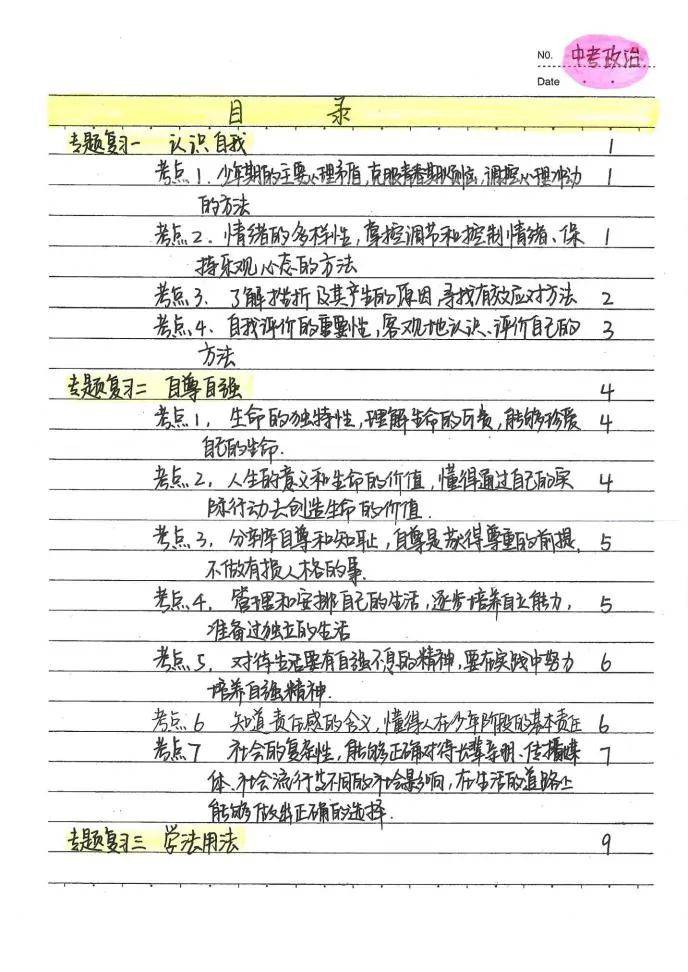 NO. 中考政治
Date
目 录
专题复习一 认识自我 1
考点1. 少年期的主要心理矛盾,克服青春期烦恼,调控心理冲动 1
的方法
考点2. 情绪的多样性,掌控调节和控制情绪、保 1
持乐观心态的方法
考点3. 了解挫折及其产生的原因,寻找有效应对方法 2
考点4. 自我评价的重要性,客观地认识、评价自己的 3
方法
专题复习二 自尊自强 4
考点1. 生命的独特性,理解生命的可贵,能够珍爱 4
自己的生命.
考点2. 人生的意义和生命的价值,懂得通过自己的实 4
际行动去创造生命的价值.
考点3. 分辨自尊和知耻,自尊是获得尊重的前提, 5
不做有损人格的事.
考点4. 管理和安排自己的生活,逐步培养自立能力, 5
准备过独立的生活
考点5. 对待生活要有自强不息的精神,要在实践中努力 6
培养自强精神.
考点6 知道责任感的含义,懂得人在少年阶段的基本责任 6
考点7 社会的复杂性,能够正确对待长辈亲朋、传播媒 7
体、社会流行等不同的社会影响,在生活的道路上
能够做出正确的选择.
专题复习三 学法用法 9